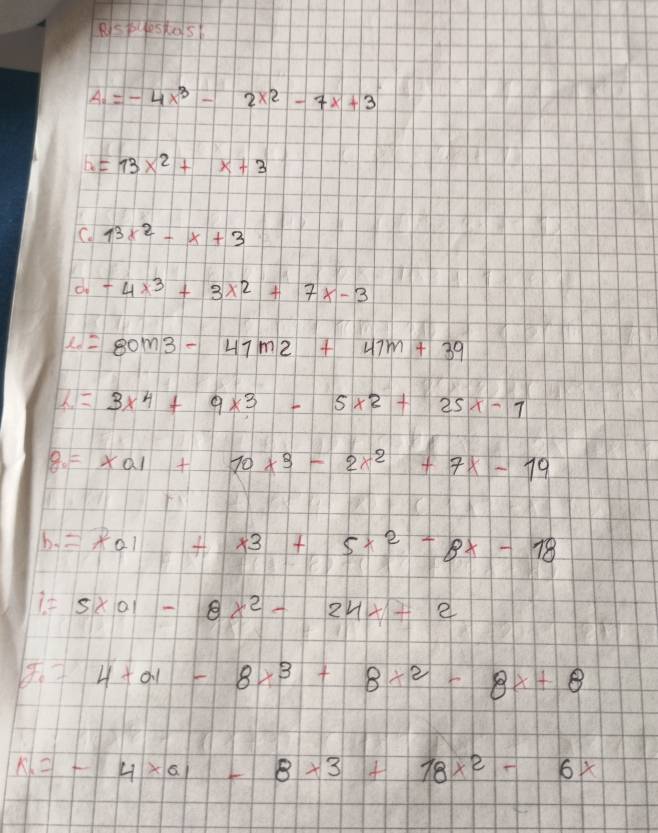 Respuestas:
A. = - 4x³ - 2x² - 7x + 3
b. = 13x² + x + 3
c. 13x² - x + 3
d. - 4x³ + 3x² + 7x - 3
e. = 80m3 - 41m2 + 41m + 39
= 3x4 + 9x3 - 5x2 + 25x - 1
g. = xa1 + 10x³ - 2x² + 7x - 19
h. = xa1 + x3 + 5x² - 8x - 18
i = 5xa1 - 8x² - 24x + 2
= 4xa1 - 8x³ + 8x² - 8x + 8
K. = - 4xa1 - 8x3 + 18x² - 6x